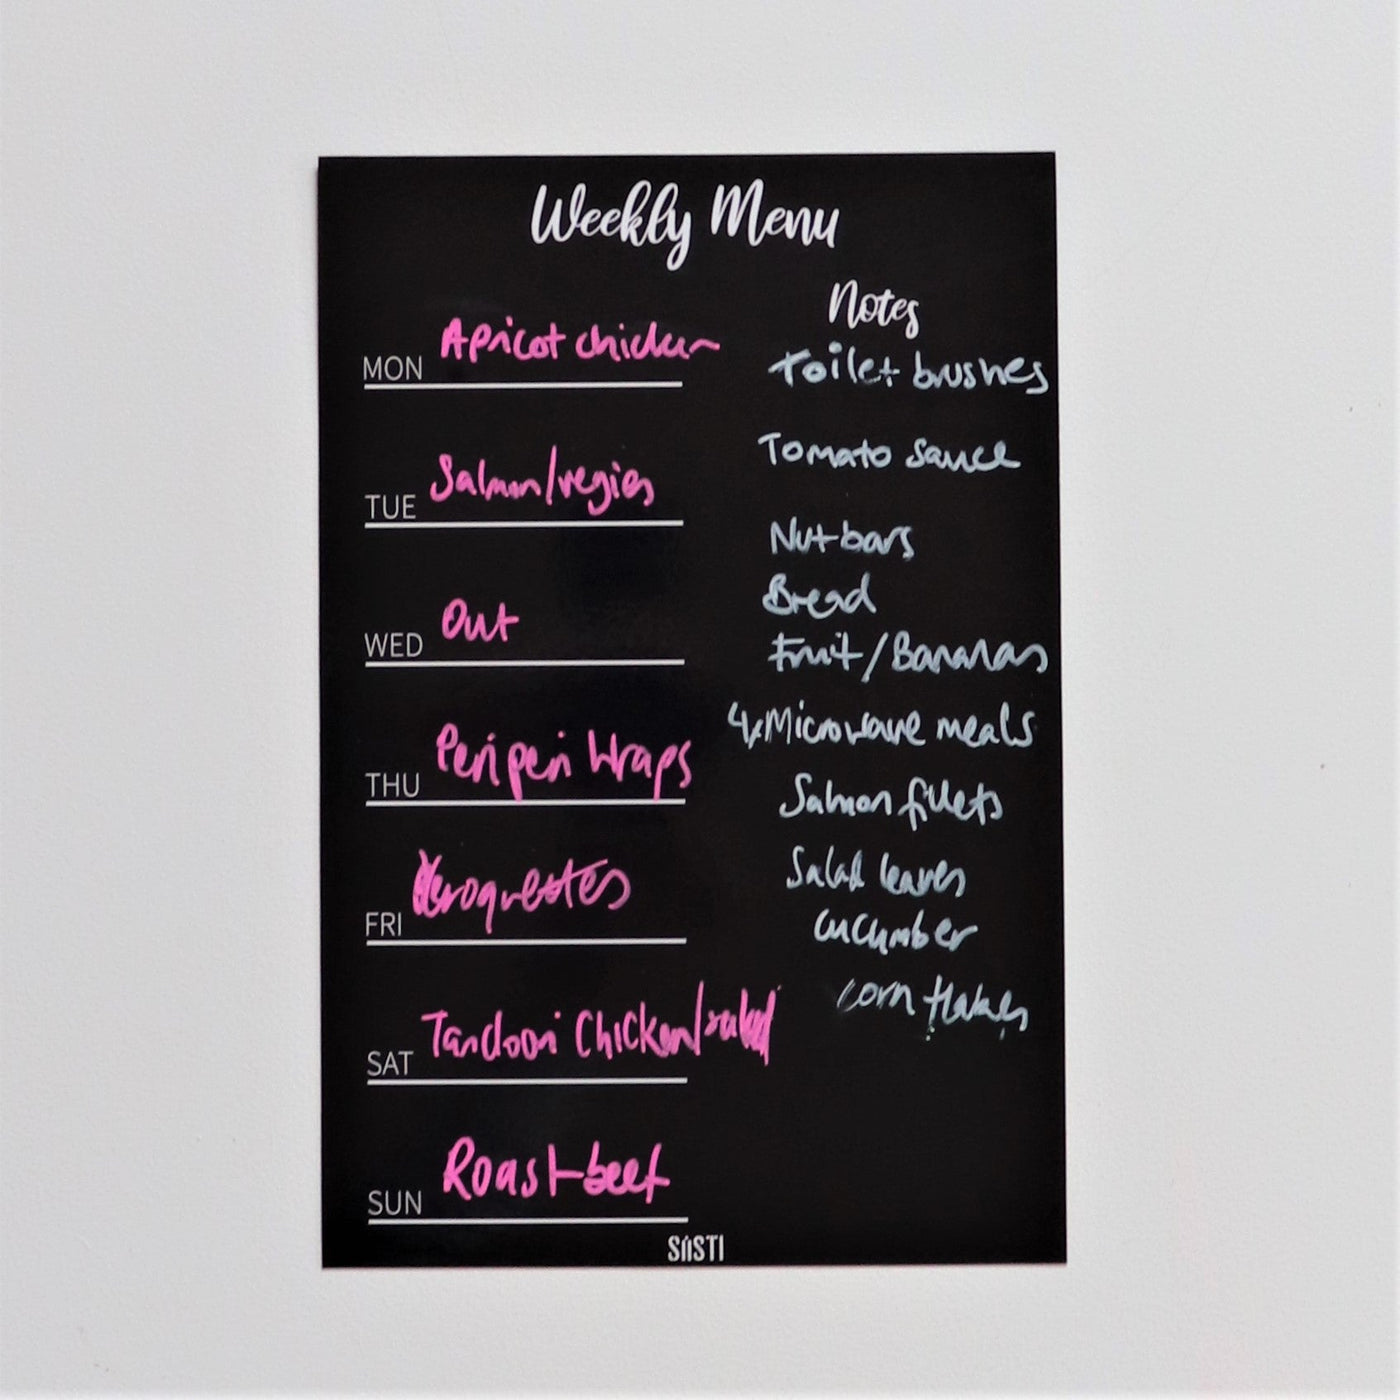 Weekly Menu
MON Apricot chicken
TUE Salmon/vegies
WED Out
THU Peri peri wraps
FRI Croquettes
SAT Tandoori Chicken/salad
SUN Roast beef
Notes
Toilet brushes
Tomato sauce
Nut bars
Bread
Fruit/Bananas
4x Microwave meals
Salmon fillets
Salad leaves
cucumber
corn flakes
SASTI